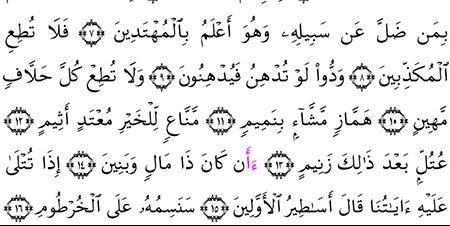 بِمَن ضَلَّ عَن سَبِيلِهِۦ وَهُوَ أَعْلَمُ بِٱلْمُهْتَدِينَ ﴿٧﴾ فَلَا تُطِعِ
ٱلْمُكَذِّبِينَ ﴿٨﴾ وَدُّوا۟ لَوْ تُدْهِنُ فَيُدْهِنُونَ ﴿٩﴾ وَلَا تُطِعْ كُلَّ حَلَّافٍ
مَّهِينٍ ﴿١٠﴾ هَمَّازٍ مَّشَّآءٍۭ بِنَمِيمٍ ﴿١١﴾ مَّنَّاعٍ لِّلْخَيْرِ مُعْتَدٍ أَثِيمٍ ﴿١٢﴾
عُتُلٍّۭ بَعْدَ ذَٰلِكَ زَنِيمٍ ﴿١٣﴾ ءَأَن كَانَ ذَا مَالٍ وَبَنِينَ ﴿١٤﴾ إِذَا تُتْلَىٰ
عَلَيْهِ ءَايَـٰتُنَا قَالَ أَسَـٰطِيرُ ٱلْأَوَّلِينَ ﴿١٥﴾ سَنَسِمُهُۥ عَلَى ٱلْخُرْطُومِ ﴿١٦﴾